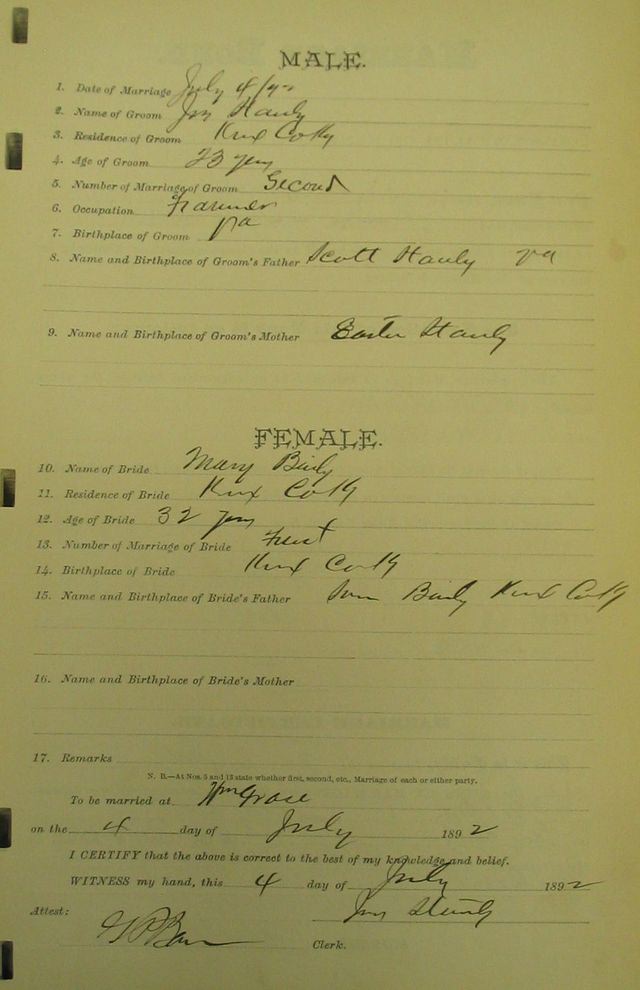 MALE.
1. Date of Marriage July 4/92
2. Name of Groom Jno Hanly
3. Residence of Groom Knx Co Ky
4. Age of Groom 23 yrs
5. Number of Marriage of Groom Second
6. Occupation Farmer
7. Birthplace of Groom Va
8. Name and Birthplace of Groom's Father Scott Hanly Va
9. Name and Birthplace of Groom's Mother Easter Hanly
FEMALE.
10. Name of Bride Mary Binly
11. Residence of Bride Knx Co Ky
12. Age of Bride 32 yrs
13. Number of Marriage of Bride First
14. Birthplace of Bride Knx Co Ky
15. Name and Birthplace of Bride's Father Binly Knx Co Ky
16. Name and Birthplace of Bride's Mother
17. Remarks
N. B.—At Nos. 5 and 13 state whether first, second, etc., Marriage of each or either party.
To be married at Wm
on the 4 day of July 1892
I CERTIFY that the above is correct to the best of my knowledge and belief.
WITNESS my hand, this 4 day of July 1892
Attest: Jno
Clerk.